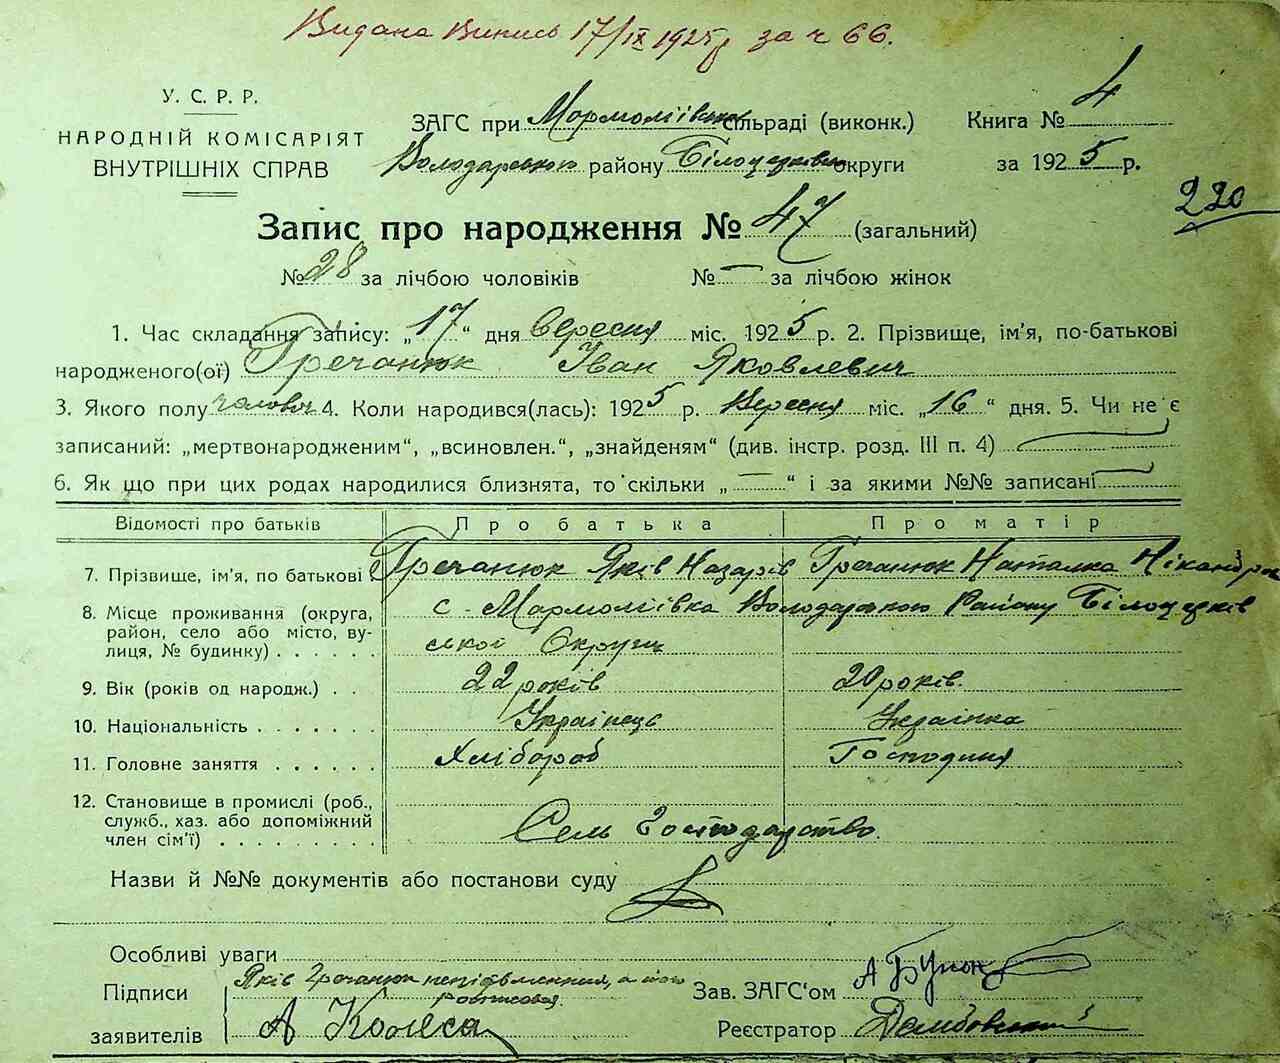 Видана Випись 17/IX 1925 р за ч 66.
У. С. Р. Р.
НАРОДНІЙ КОМІСАРІЯТ
ВНУТРІШНІХ СПРАВ
ЗАГС при Мармоліївськ сільраді (виконк.)
Володарського району Білоцерківськ округи
Книга № 4
за 1925 р.
220
Запис про народження № 47 (загальний)
№ 28 за лічбою чоловіків № — за лічбою жінок
1. Час складання запису: „17“ дня Вересня міс. 1925 р. 2. Прізвище, ім'я, по-батькові
народженого(ої) Гречанюк Іван Яковлевич
3. Якого полу чоловіч 4. Коли народився(лась): 1925 р. Вересня міс. „16“ дня. 5. Чи не є
записаний: „мертвонародженим“, „всиновлен.“, „знайденям“ (див. інстр. розд. III п. 4)
6. Як що при цих родах народилися близнята, то скільки „—“ і за якими №№ записані —
Відомості про батьків Про батька Про матір
7. Прізвище, ім'я, по батькові Гречанюк Яків Назарів Гречанюк Наталка Нікандров
8. Місце проживання (округа, район, село або місто, вулиця, № будинку) . . . . . . с. Мармоліївка Володарського Району Білоцерків
ської Округи
9. Вік (років од народж.) . . 22 років 20 років.
10. Національність . . . . . . . Українець Українка
11. Головне заняття . . . . . . Хлібороб Господиня
12. Становище в промислі (роб., служб., хаз. або допоміжний член сім'ї) . . . . . . . . . Сель Господарство.
Назви й №№ документів або постанови суду
Особливі уваги
Підписи заявителів
Яків Гречанюк неписьменний, а його
росписався
А Коляса
Зав. ЗАГС'ом А
Реєстратор Дембовський